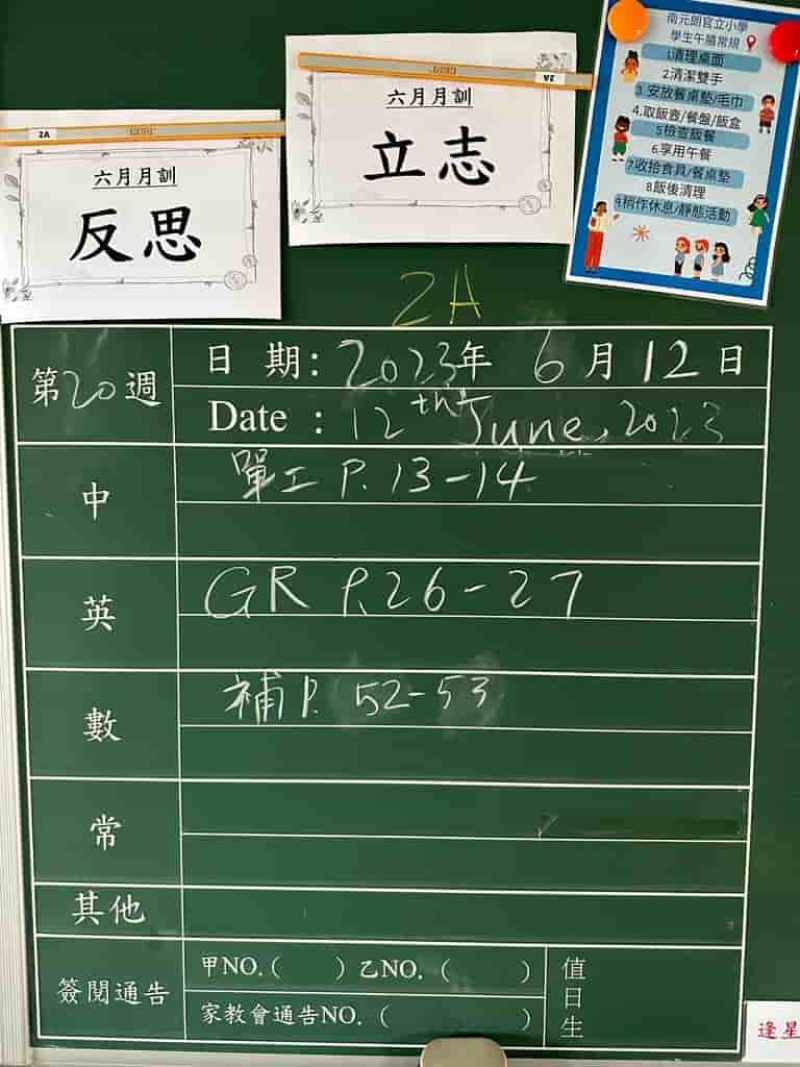 南元朗官立小學
學生午膳常規
1清理桌面
2.清潔雙手
3.安放餐桌墊/毛巾
4.取飯壺/餐盤/飯盒
5檢查飯餐
6.享用午餐
7.收拾食具/餐桌墊
8.飯後清理
9.稍作休息/靜態活動
六月月訓
立志
2A
六月月訓
反思
2A
第20週
日 期：2023年 6月12日
Date : 12th June, 2023
中
單工 P.13-14
英
GR P.26-27
數
補P. 52-53
常
其他
簽閱通告
甲NO.( ) 乙NO. ( )
家教會通告NO. ( )
值日生
逢星